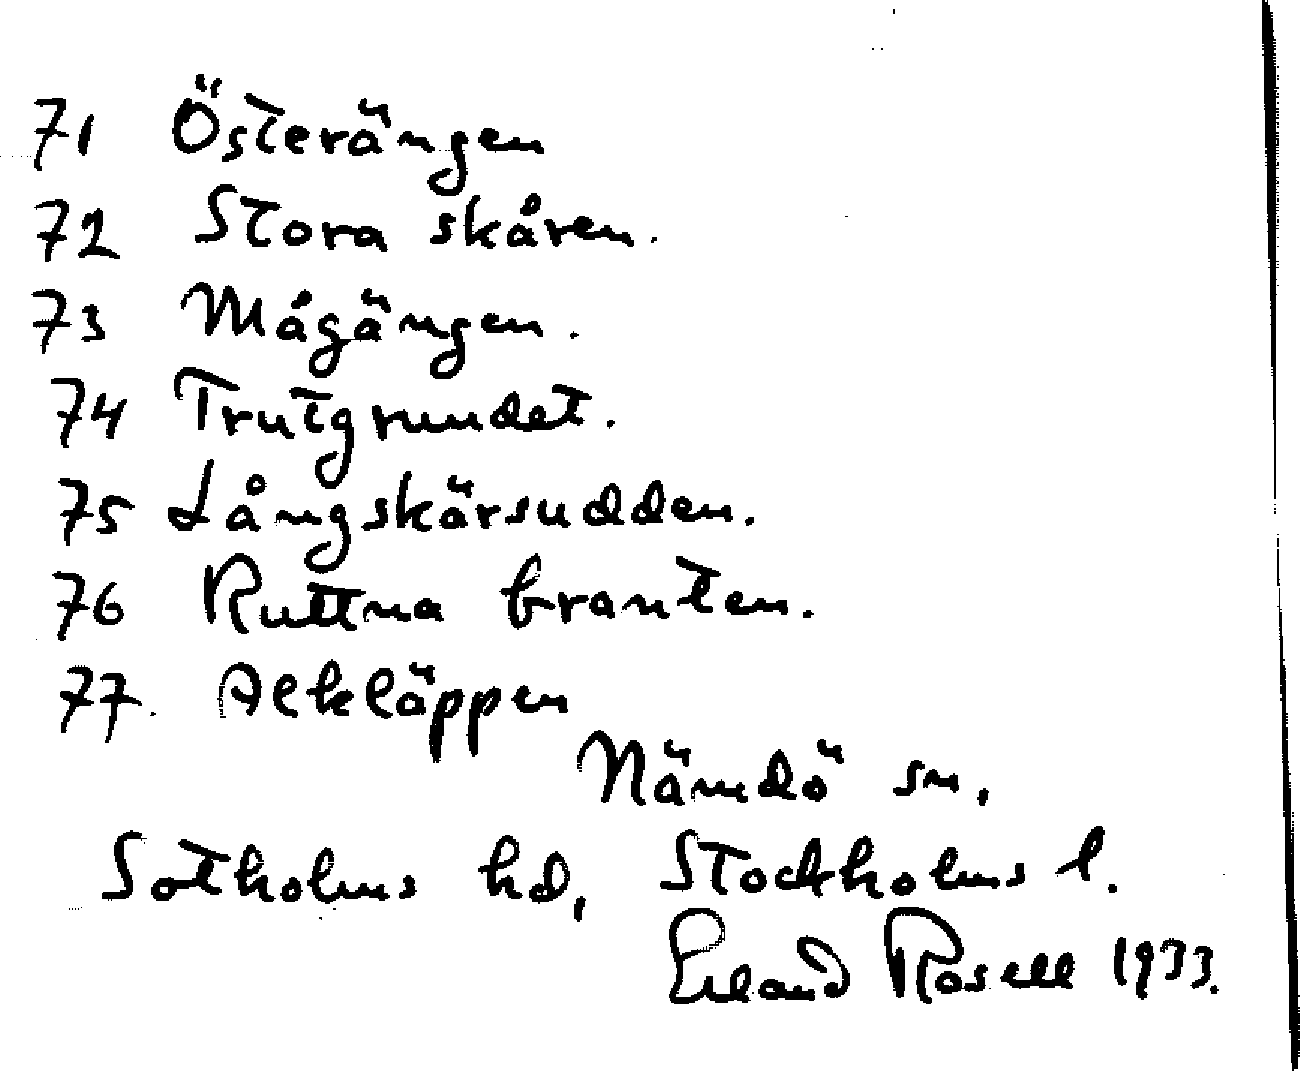 71 Österängen
72 Stora skåren.
73 Mågängen.
74 Trutgrundet.
75 Långskärsudden.
76 Ruttna branten.
77. Alkläppen
Nämdö sn,
Sotholms hd, Stockholms l.
Erland Rosell 1933.